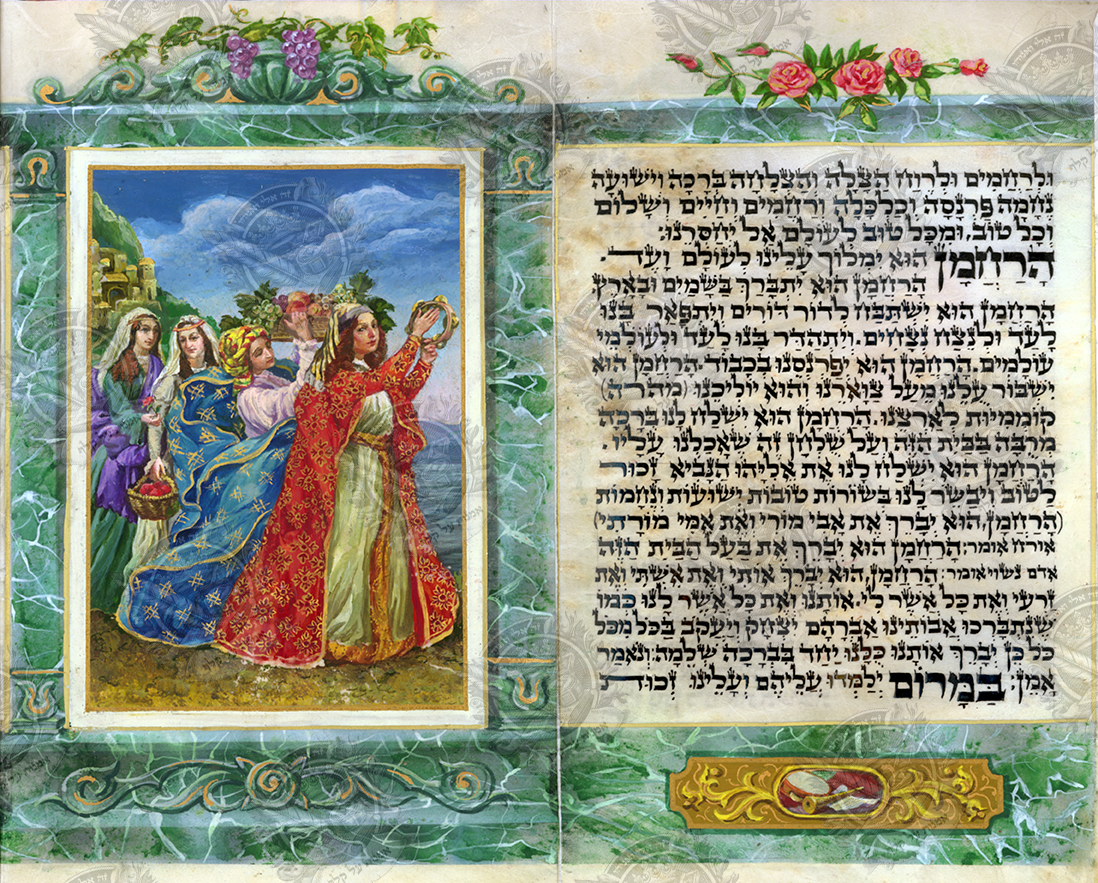 וּלְרַחֲמִים וּלְרֶוַח הַצָּלָה וְהַצְלָחָה בְּרָכָה וִישׁוּעָה
נֶחָמָה פַּרְנָסָה וְכַלְכָּלָה וְרַחֲמִים וְחַיִּים וְשָׁלוֹם
וְכָל טוֹב, וּמִכָּל טוּב לְעוֹלָם אַל יְחַסְּרֵנוּ:
הָרַחֲמָן הוּא יִמְלוֹךְ עָלֵינוּ לְעוֹלָם וָעֶד.
הָרַחֲמָן הוּא יִתְבָּרַךְ בַּשָּׁמַיִם וּבָאָרֶץ
הָרַחֲמָן הוּא יִשְׁתַּבַּח לְדוֹר דּוֹרִים וְיִתְפָּאַר בָּנוּ
לָעַד וּלְנֵצַח נְצָחִים. וְיִתְהַדַּר בָּנוּ לָעַד וּלְעוֹלְמֵי
עוֹלָמִים. הָרַחֲמָן הוּא יְפַרְנְסֵנוּ בְּכָבוֹד. הָרַחֲמָן הוּא
יִשְׁבּוֹר עֻלֵּנוּ מֵעַל צַוָּארֵנוּ וְהוּא יוֹלִיכֵנוּ (מְהֵרָה)
קוֹמְמִיּוּת לְאַרְצֵנוּ. הָרַחֲמָן הוּא יִשְׁלַח לָנוּ בְּרָכָה
מְרֻבָּה בַּבַּיִת הַזֶּה וְעַל שֻׁלְחָן זֶה שֶׁאָכַלְנוּ עָלָיו.
הָרַחֲמָן הוּא יִשְׁלַח לָנוּ אֶת אֵלִיָּהוּ הַנָּבִיא זָכוּר
לַטּוֹב וִיבַשֶּׂר לָנוּ בְּשׂוֹרוֹת טוֹבוֹת יְשׁוּעוֹת וְנֶחָמוֹת
(הָרַחֲמָן, הוּא יְבָרֵךְ אֶת אָבִי מוֹרִי וְאֶת אִמִּי מוֹרָתִי)
אורח אומר: הָרַחֲמָן הוּא יְבָרֵךְ אֶת בַּעַל הַבַּיִת הַזֶּה
אדם נשוי אומר: הָרַחֲמָן, הוּא יְבָרֵךְ אוֹתִי וְאֶת אִשְׁתִּי וְאֶת
זַרְעִי וְאֶת כָּל אֲשֶׁר לִי. אוֹתָנוּ וְאֶת כָּל אֲשֶׁר לָנוּ כְּמוֹ
שֶׁנִּתְבָּרְכוּ אֲבוֹתֵינוּ אַבְרָהָם יִצְחָק וְיַעֲקֹב בַּכֹּל מִכֹּל
כֹּל כֵּן יְבָרֵךְ אוֹתָנוּ כֻּלָּנוּ יַחַד בִּבְרָכָה שְׁלֵמָה: וְנֹאמַר
אָמֵן: בַּמָּרוֹם יְלַמְּדוּ עֲלֵיהֶם וְעָלֵינוּ זְכוּת